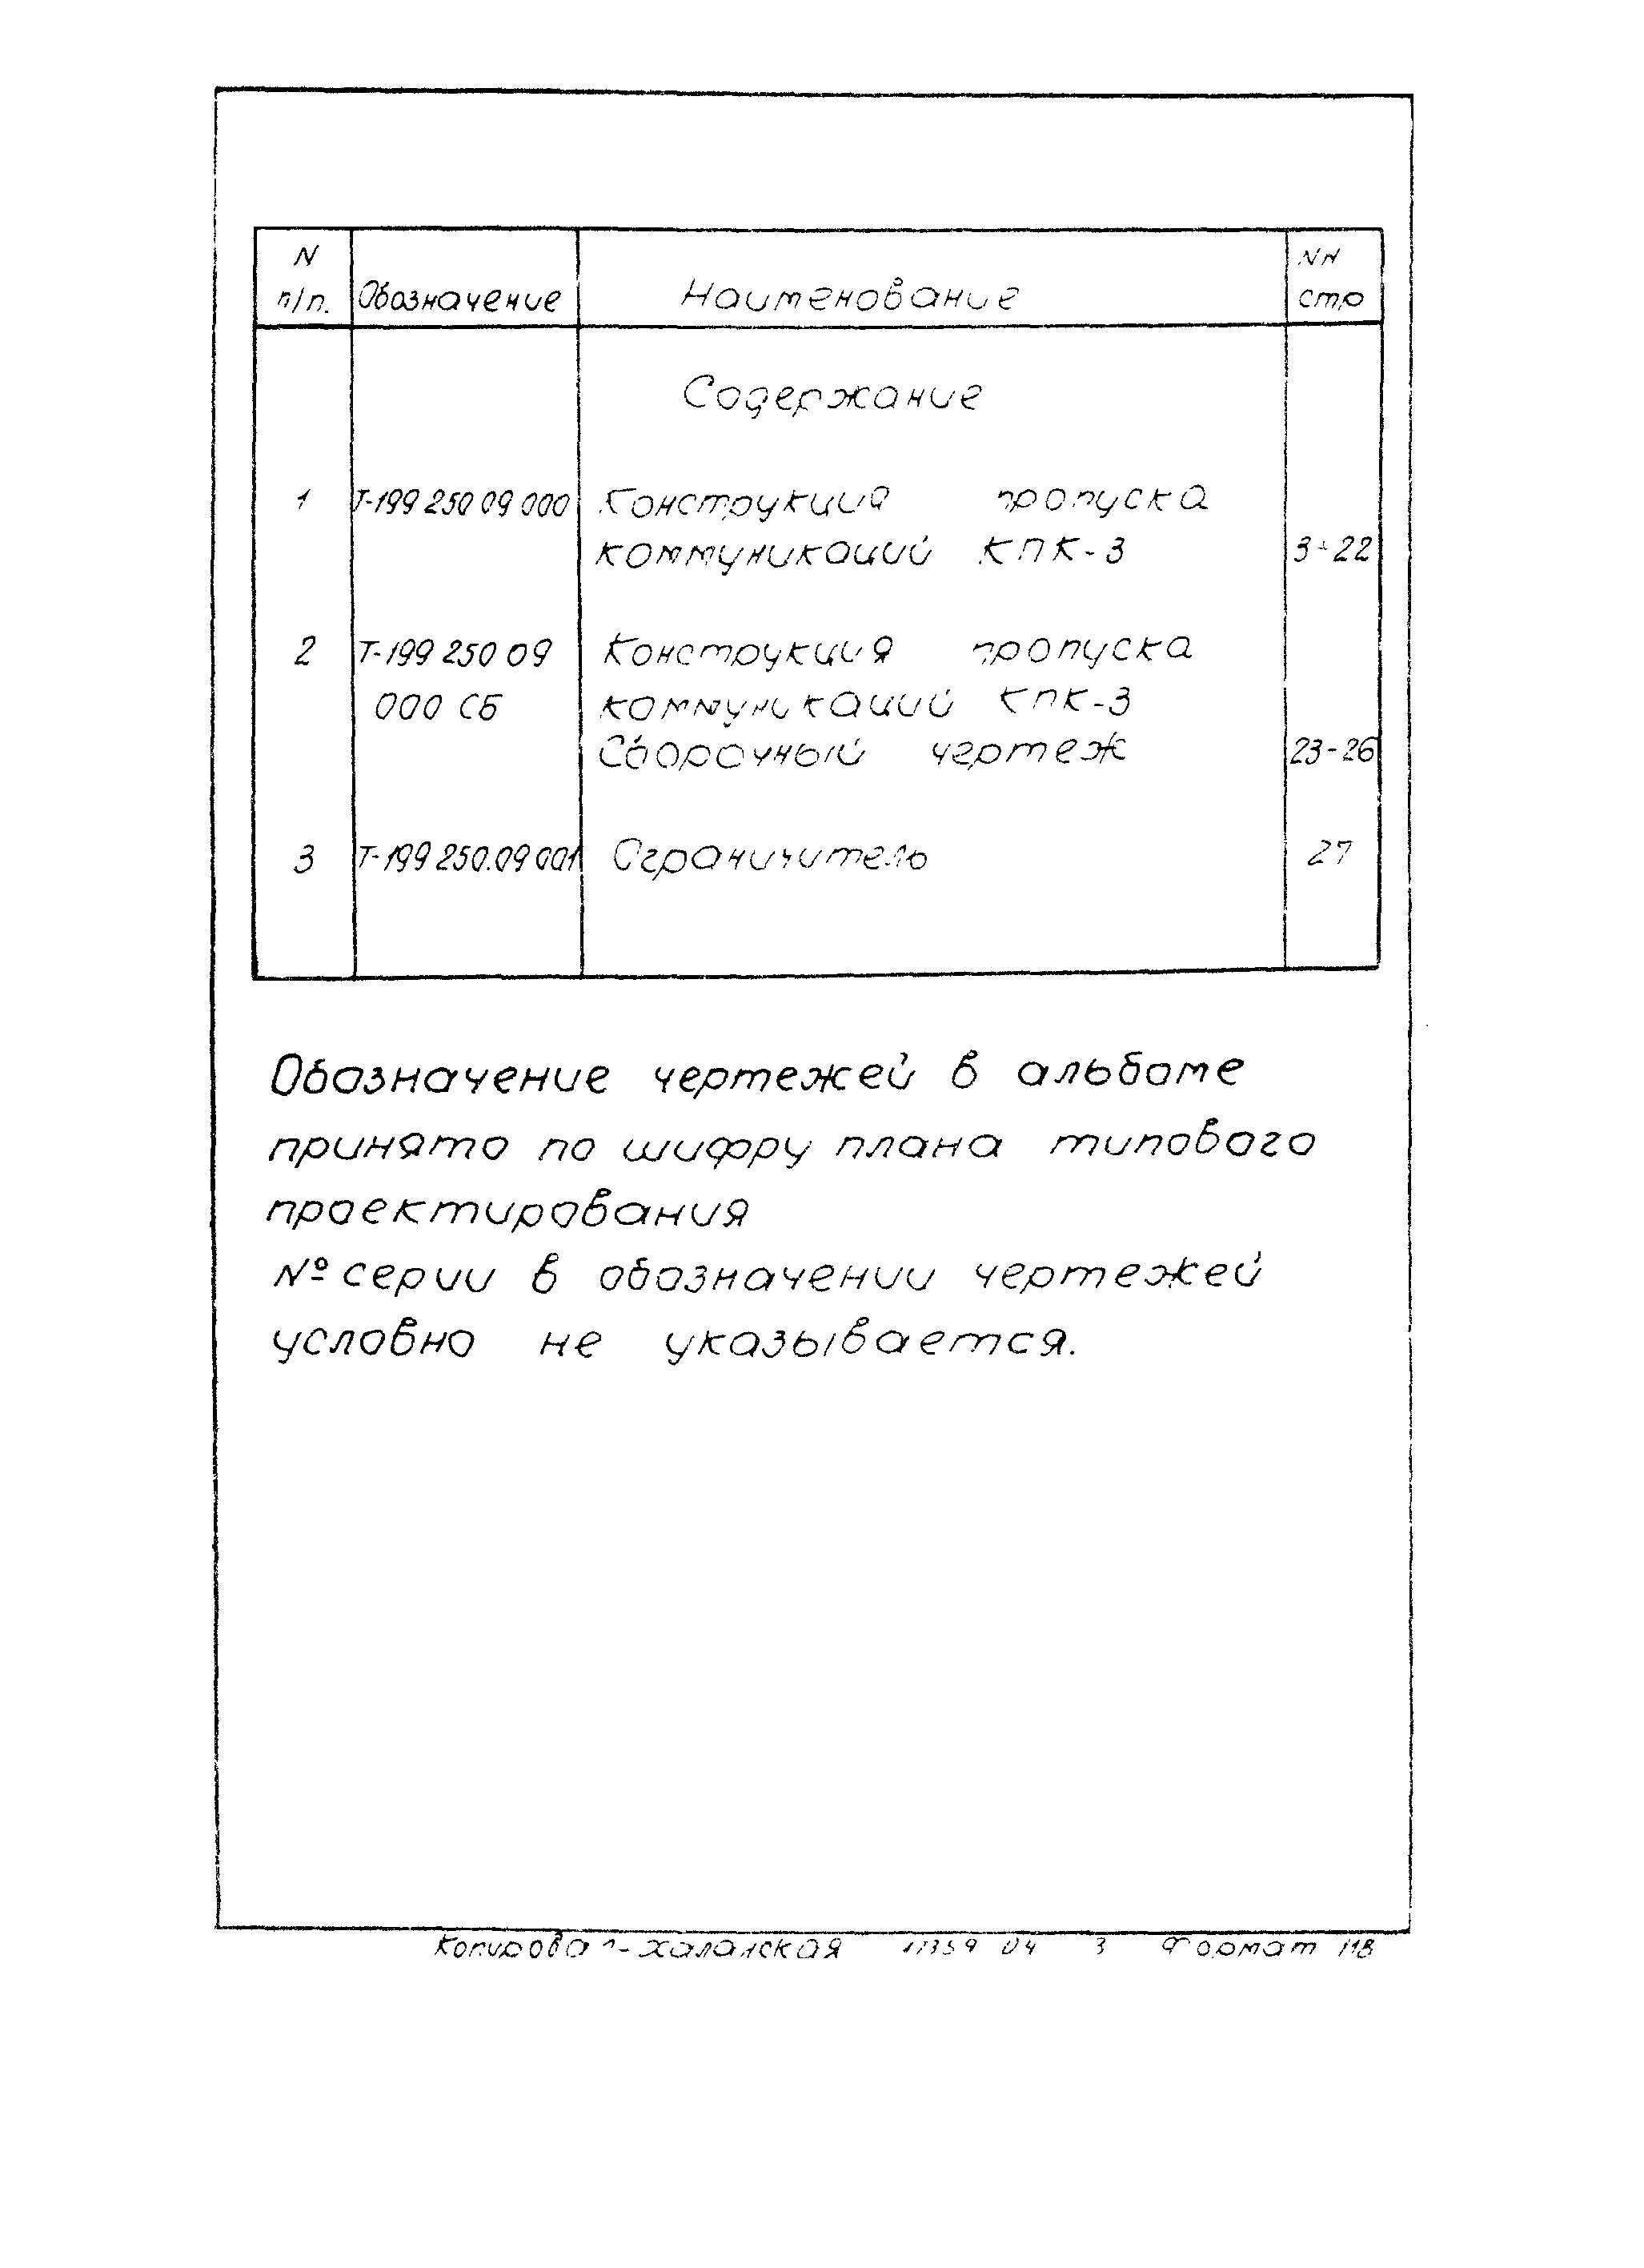 N
п/п.
Обозначение
Наименование
NN
стр
Содержание
1 Т-199 250 09 000 Конструкция пропуска
коммуникаций КПК-3 3÷22
2 Т-199 250 09 Конструкция пропуска
000 СБ коммуникаций КПК-3
Сборочный чертеж 23-26
3 Т-199 250.09 001 Ограничитель 27
Обозначение чертежей в альбоме
принято по шифру плана типового
проектирования
№ серии в обозначении чертежей
условно не указывается.
Халанская 04 3 Формат